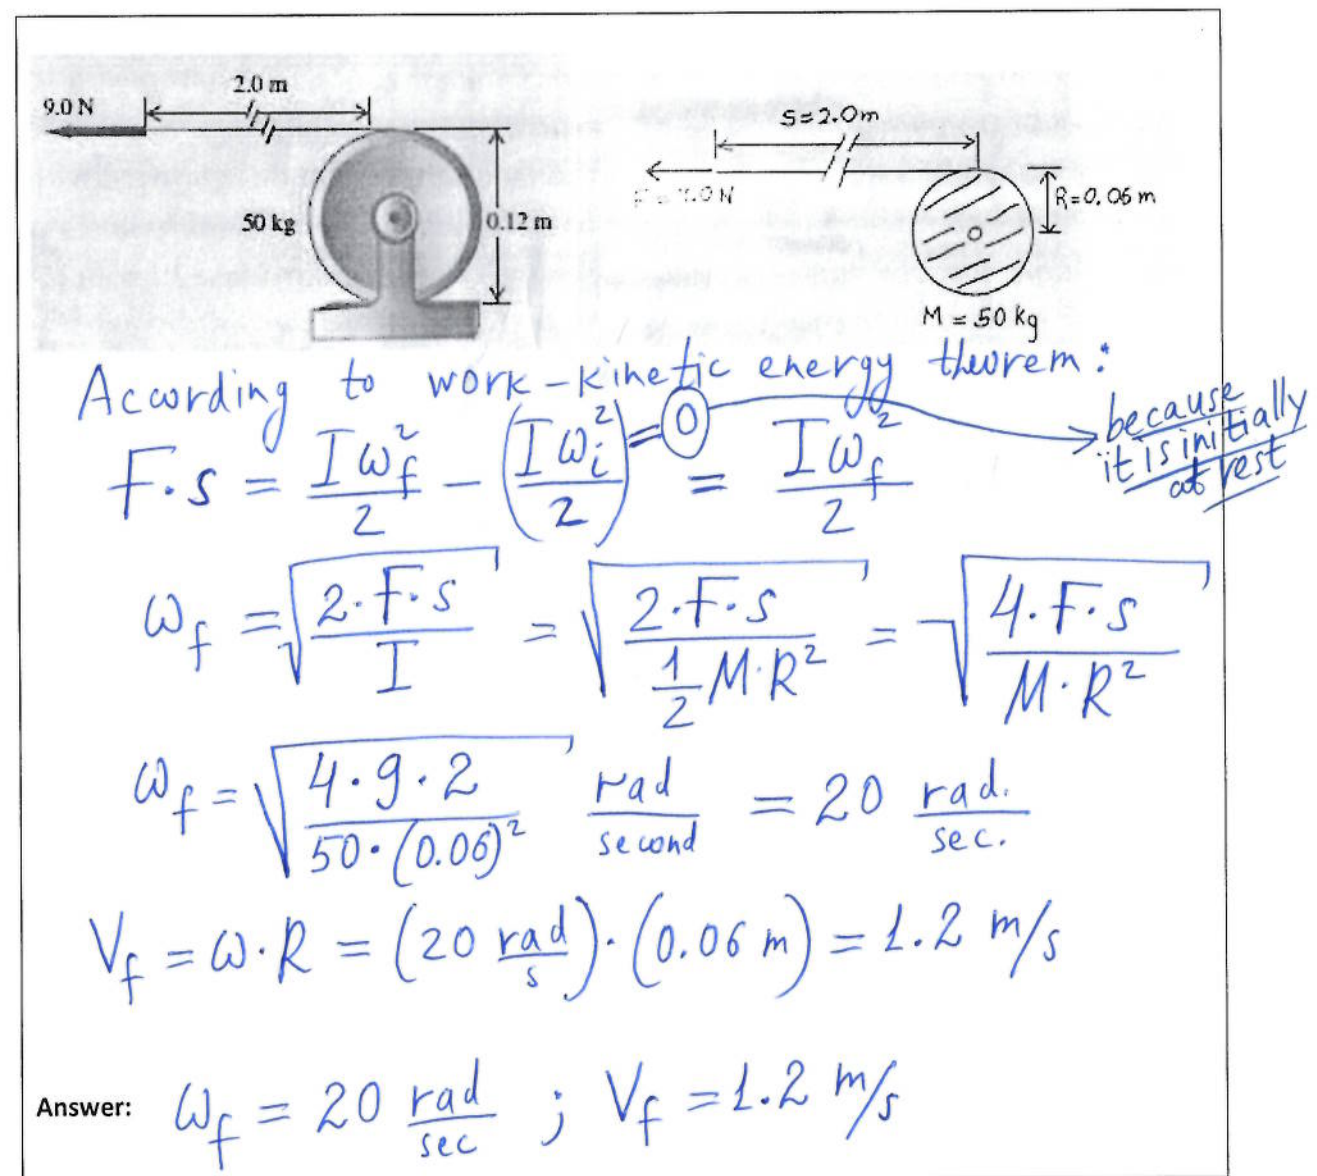 2.0 m
9.0 N
50 kg
0.12 m
S=2.0m
R=0.06 m
M = 50 kg
According to work-kinetic energy theorem:
F·s = Iω_f²/2 − (Iω_i²/2) = 0 = Iω_f²/2
because it is initially at rest
ω_f = √(2·F·s / I) = √(2·F·s / (1/2 M·R²)) = √(4·F·s / (M·R²))
ω_f = √(4·9·2 / (50·(0.06)²)) rad/second = 20 rad./sec.
V_f = ω·R = (20 rad/s)·(0.06 m) = 1.2 m/s
Answer: ω_f = 20 rad/sec ; V_f = 1.2 m/s